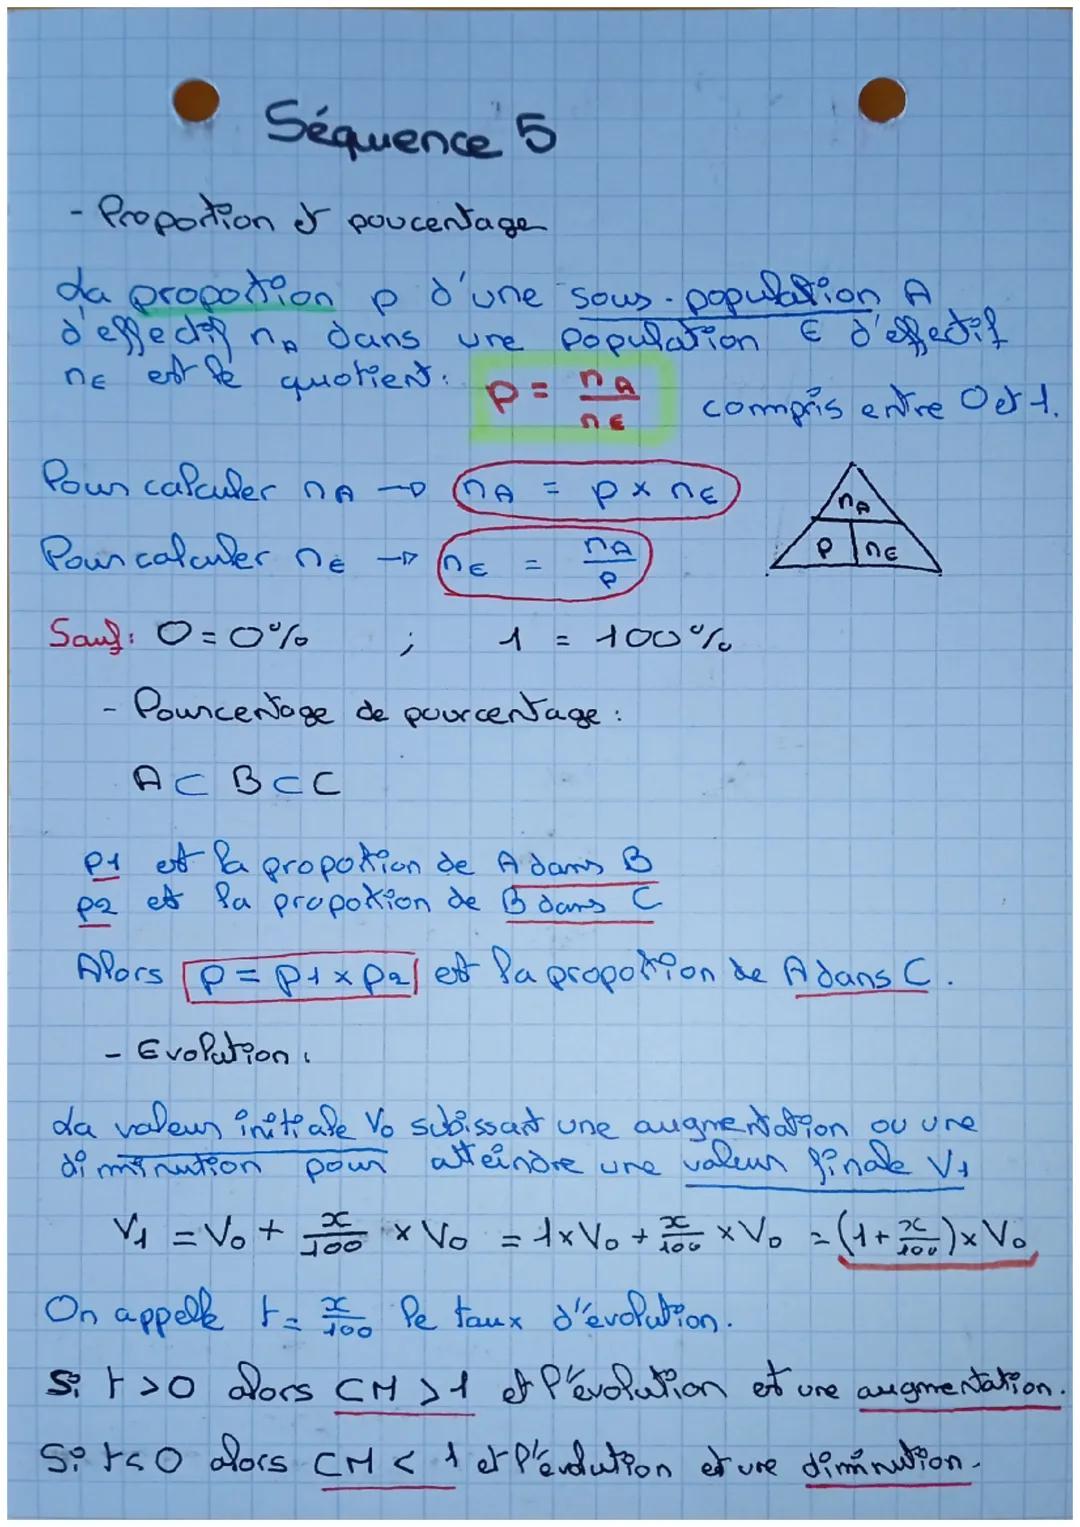 Séquence 5
- Proportion et poucentage
La proportion p d'une sous-population A
d'effectif nA dans une population E d'effectif
nE est le quotient: p = nA/nE compris entre 0 et 1.
Pour calculer nA → nA = p x nE
Pour calculer nE → nE = nA/p
nA
p nE
Sauf: 0 = 0% ; 1 = 100%
- Pourcentage de pourcentage :
A ⊂ B ⊂ C
p1 est la proportion de A dans B
p2 est la proportion de B dans C
Alors p = p1 x p2 est la proportion de A dans C.
- Evolution :
La valeur initiale V0 subissant une augmentation ou une
diminution pour atteindre une valeur finale V1
V1 = V0 + x/100 x V0 = 1 x V0 + x/100 x V0 = (1 + x/100) x V0
On appelle t = x/100 le taux d'évolution.
Si t > 0 alors CM > 1 et l'évolution est une augmentation.
Si t < 0 alors CM < 1 et l'évolution est une diminution.